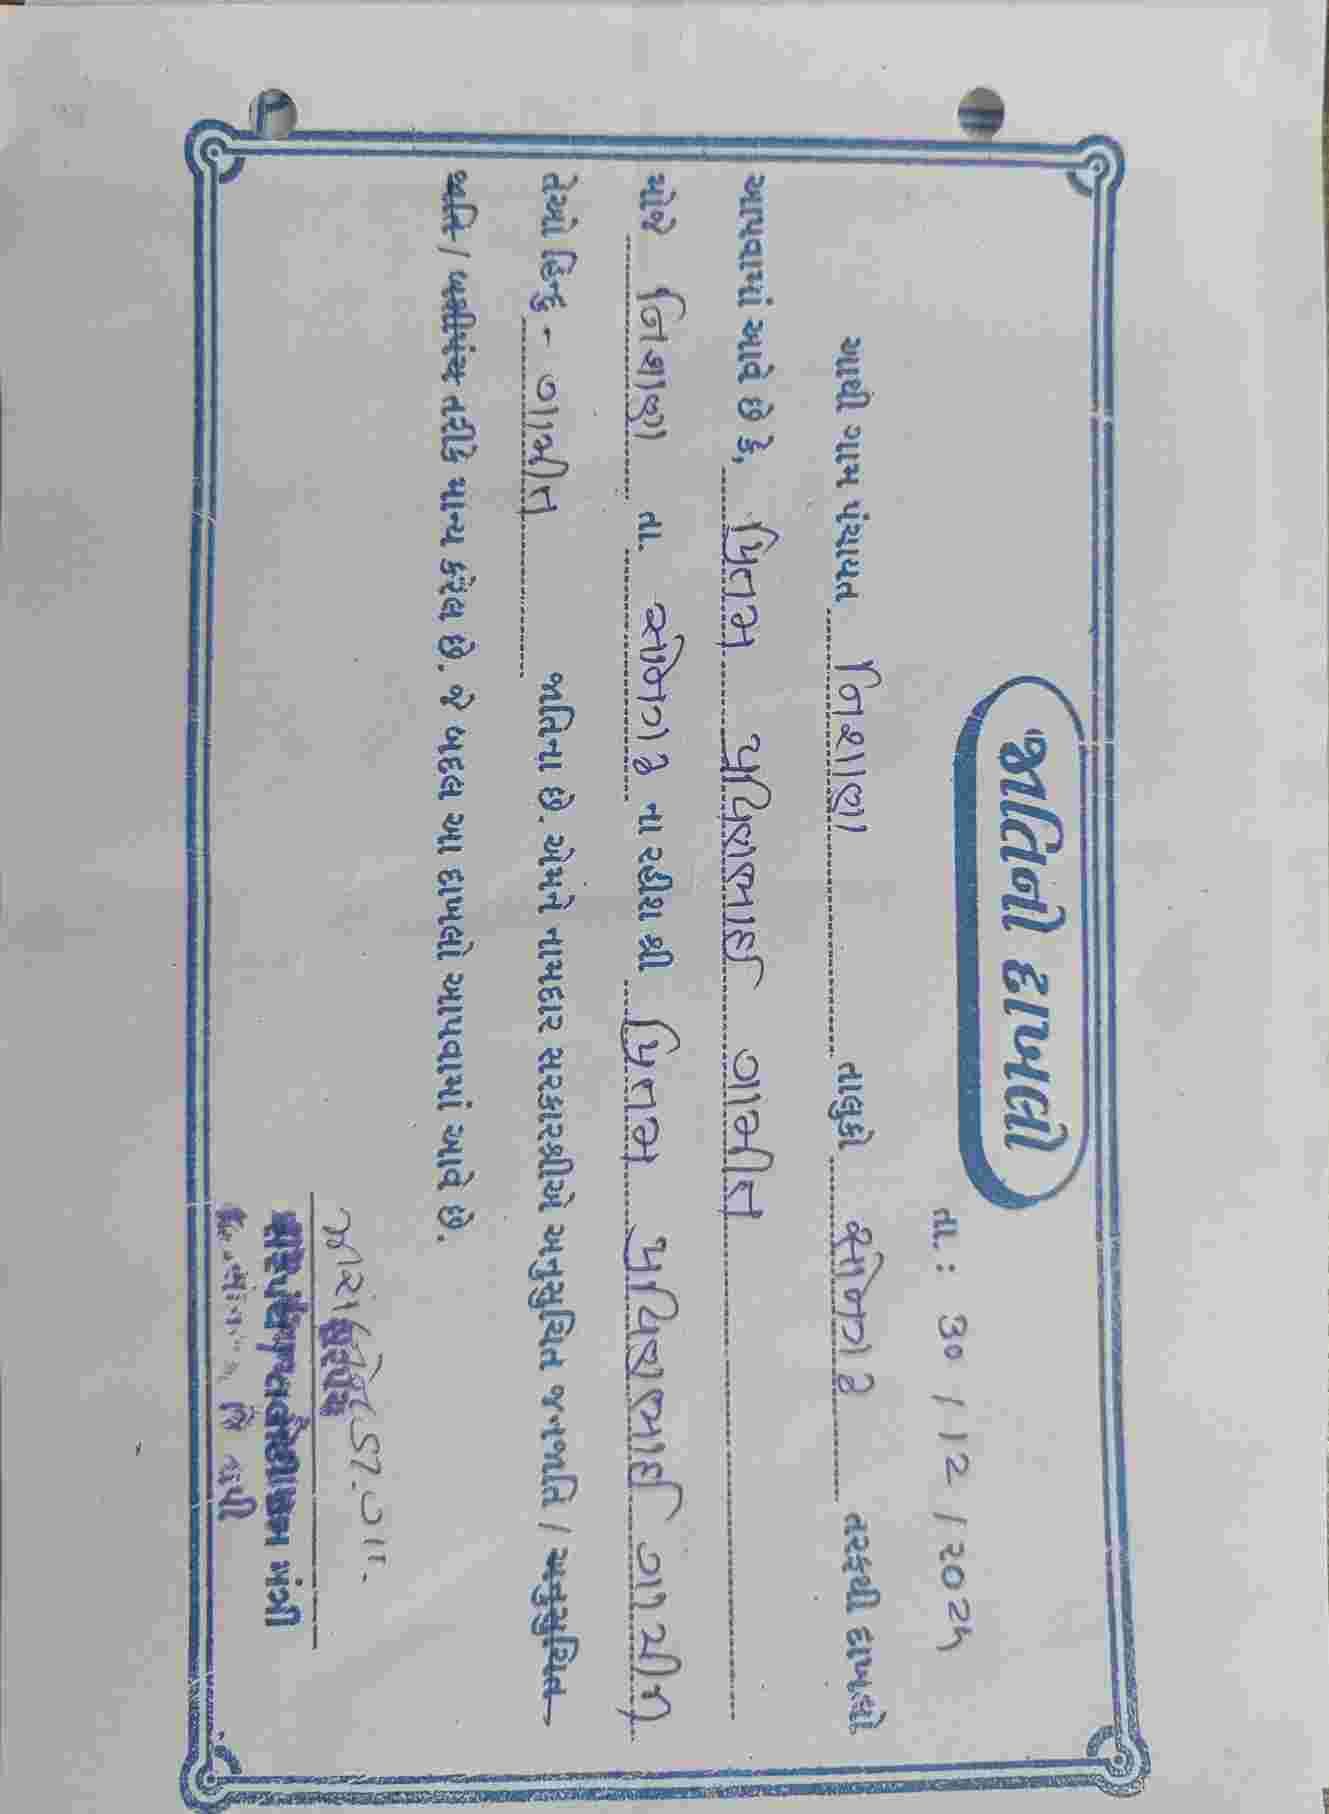 જાતિનો દાખલો
તા. : 30 / 12 / 2024
આથી ગામ પંચાયત નિશાણા તાલુકો સોનગઢ તરફથી દાખલો
આપવામાં આવે છે કે, પ્રિતમ ગામીત
મોજે નિશાણા તા. સોનગઢ ના રહીશ શ્રી પ્રિતમ ગામીત
તેઓ હિન્દુ - ગામીત જાતિના છે. એમને નામદાર સરકારશ્રીએ અનુસુચિત જનજાતિ / અનુસુચિત
જાતિ / બક્ષીપંચ તરીકે માન્ય કરેલ છે. જે બદલ આ દાખલો આપવામાં આવે છે.
સરપંચ